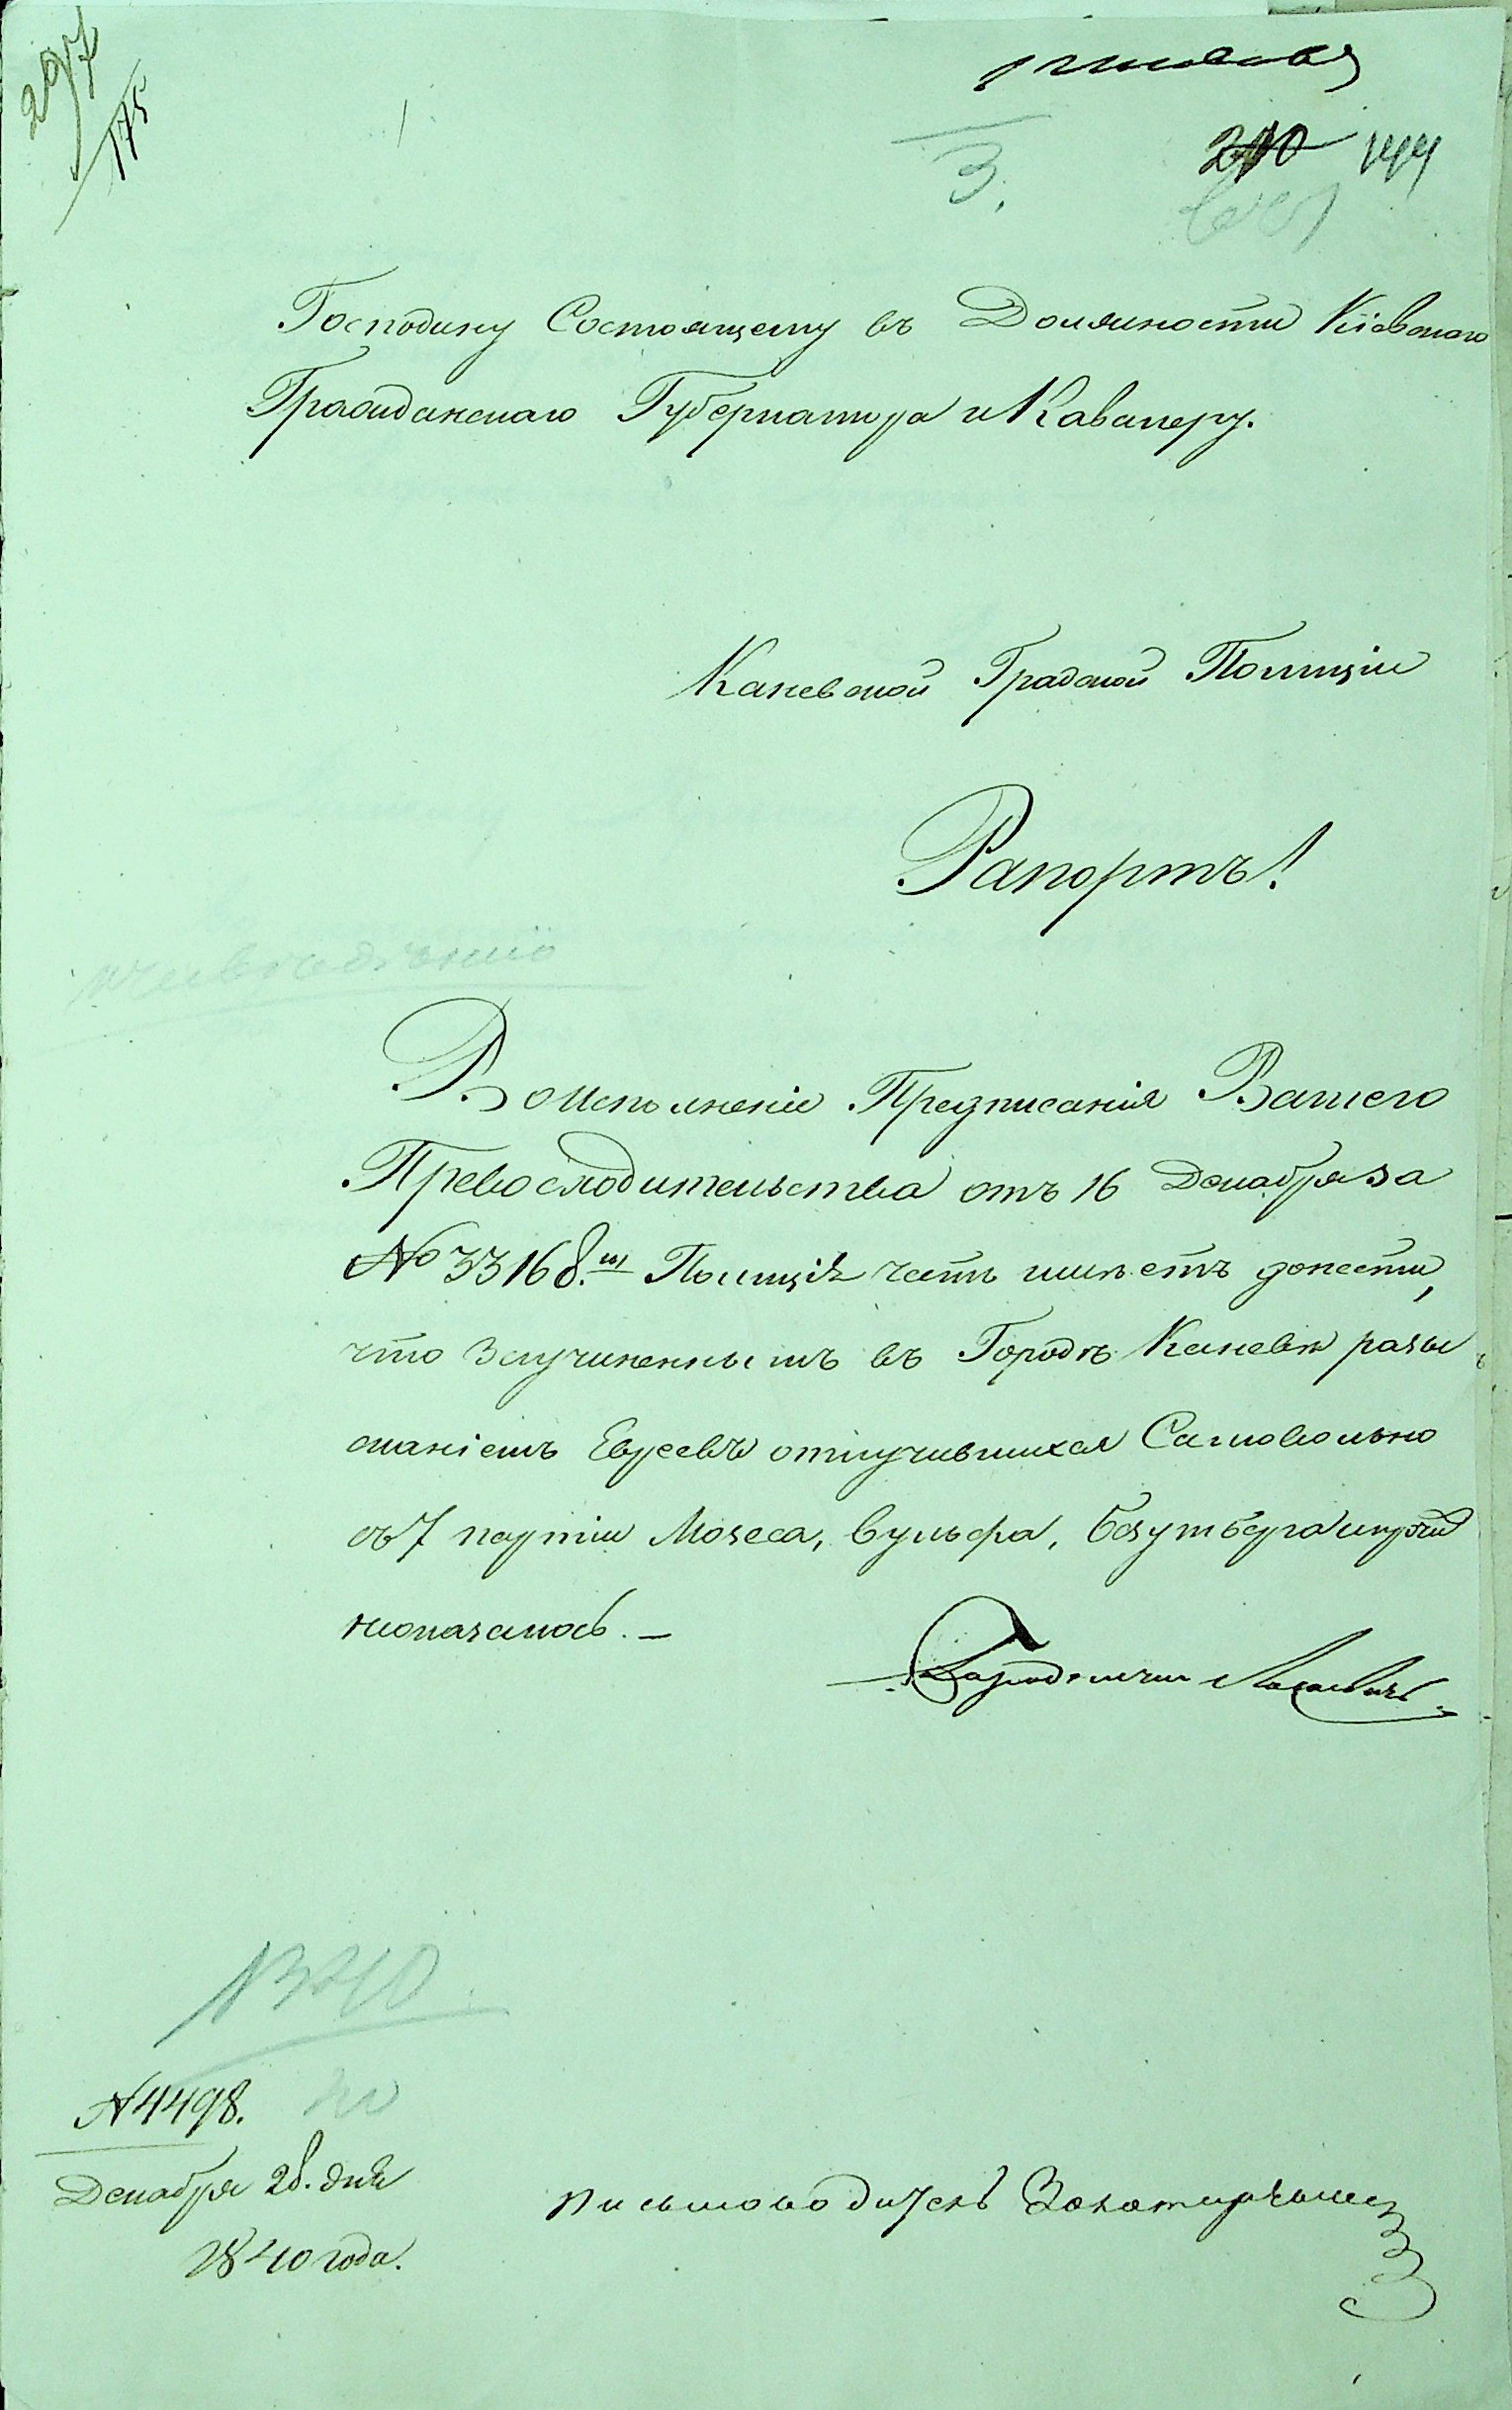 297
175
3.
210 144
Господину Состоящему въ Должности Кіевскаго
Гражданскаго Губернатора и Кавалеру.
Каневской Градской Полиціи
Рапортъ!
Во исполненіи Предписанія Вашего
Превосходительства отъ 16 Декабря за
№ 33168.м Полиція честь имѣетъ донести,
что заучиненнымъ въ Городѣ Каневѣ розы
сканіемъ Евреевъ отлучившихся Самовольно
съ 7 партіи Мозеса, Вульфа,
неоказалось. —
Городничий
1840
№ 4498.
Декабря 28. дня
1840 года.
Письмоводитель